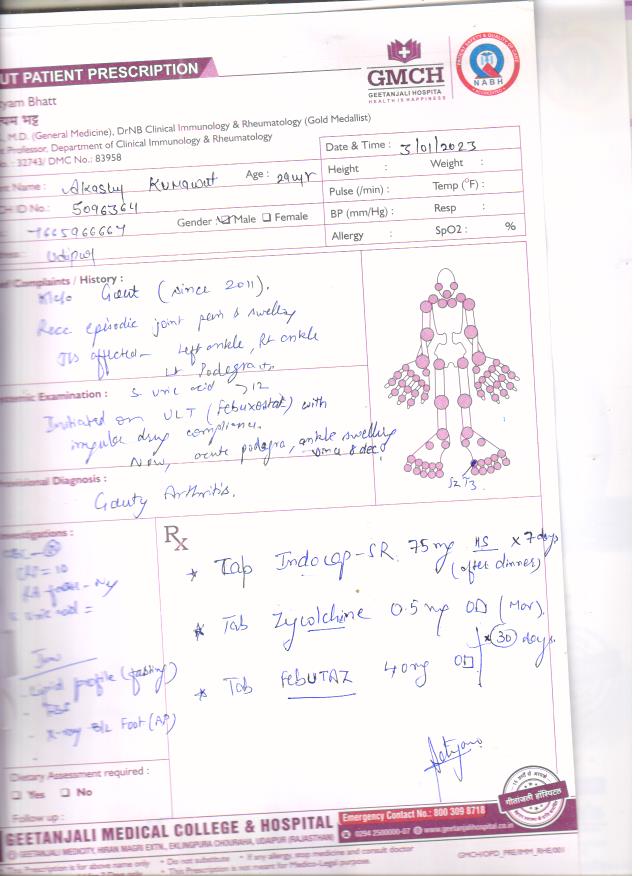 UT PATIENT PRESCRIPTION
GMCH
GEETANJALI HOSPITA
HEALTH IS HAPPINESS
PATIENT SAFETY & QUALITY OF CARE
NABH
yam Bhatt
यम भट्ट
M.D. (General Medicine), DrNB Clinical Immunology & Rheumatology (Gold Medallist)
Professor, Department of Clinical Immunology & Rheumatology
32743/ DMC No.: 83958
Date & Time : 3/01/2023
Height : Weight :
Pulse (/min) : Temp (°F) :
BP (mm/Hg) : Resp :
Allergy : SpO2 : %
Name : Akashy Kumawat Age : 29yr
H ID No.: 5096364
7665966667 Gender Male Female
Udipur
Complaints / History :
Gout (since 2011).
Recc episodic joint pain & swelling
Jts affected - Left ankle, Rt ankle
Lt Podegra
Examination : S. uric acid → 12
Initiated on ULT (febuxostat) with
irregular drug compliance.
Now, acute podagra, ankle swelling
since 8 dec.
S2T3
visional Diagnosis :
Gouty Arthritis.
estigations :
Rx
* Tap Indocap-SR 75mg HS x 7 days
(after dinner)
* Tab Zycolchine 0.5mg OD (Mor).
* 30 days.
* Tab FebUTAZ 40mg OD
CBC -
RA factor -
uric acid =
Lipid profile (fasting)
- X-ray B/L Foot (AP)
Dietary Assessment required :
Yes No
Follow up :
गीतांजली हॉस्पिटल
GEETANJALI MEDICAL COLLEGE & HOSPITAL
Emergency Contact No.: 800 309 8718
0294 2500000-07 www.geetanjalihospital.co.in
GEETANJALI MEDICITY, HIRAN MAGRI EXTN., EKLINGPURA CHOURAHA, UDAIPUR (RAJASTHAN)
Prescription is for above name only • Do not substitute • If any allergy, stop medicine and consult doctor
• This Prescription is not meant for Medico-Legal purpose.
GMCH/OPD_PRE/IMM_RHE/001